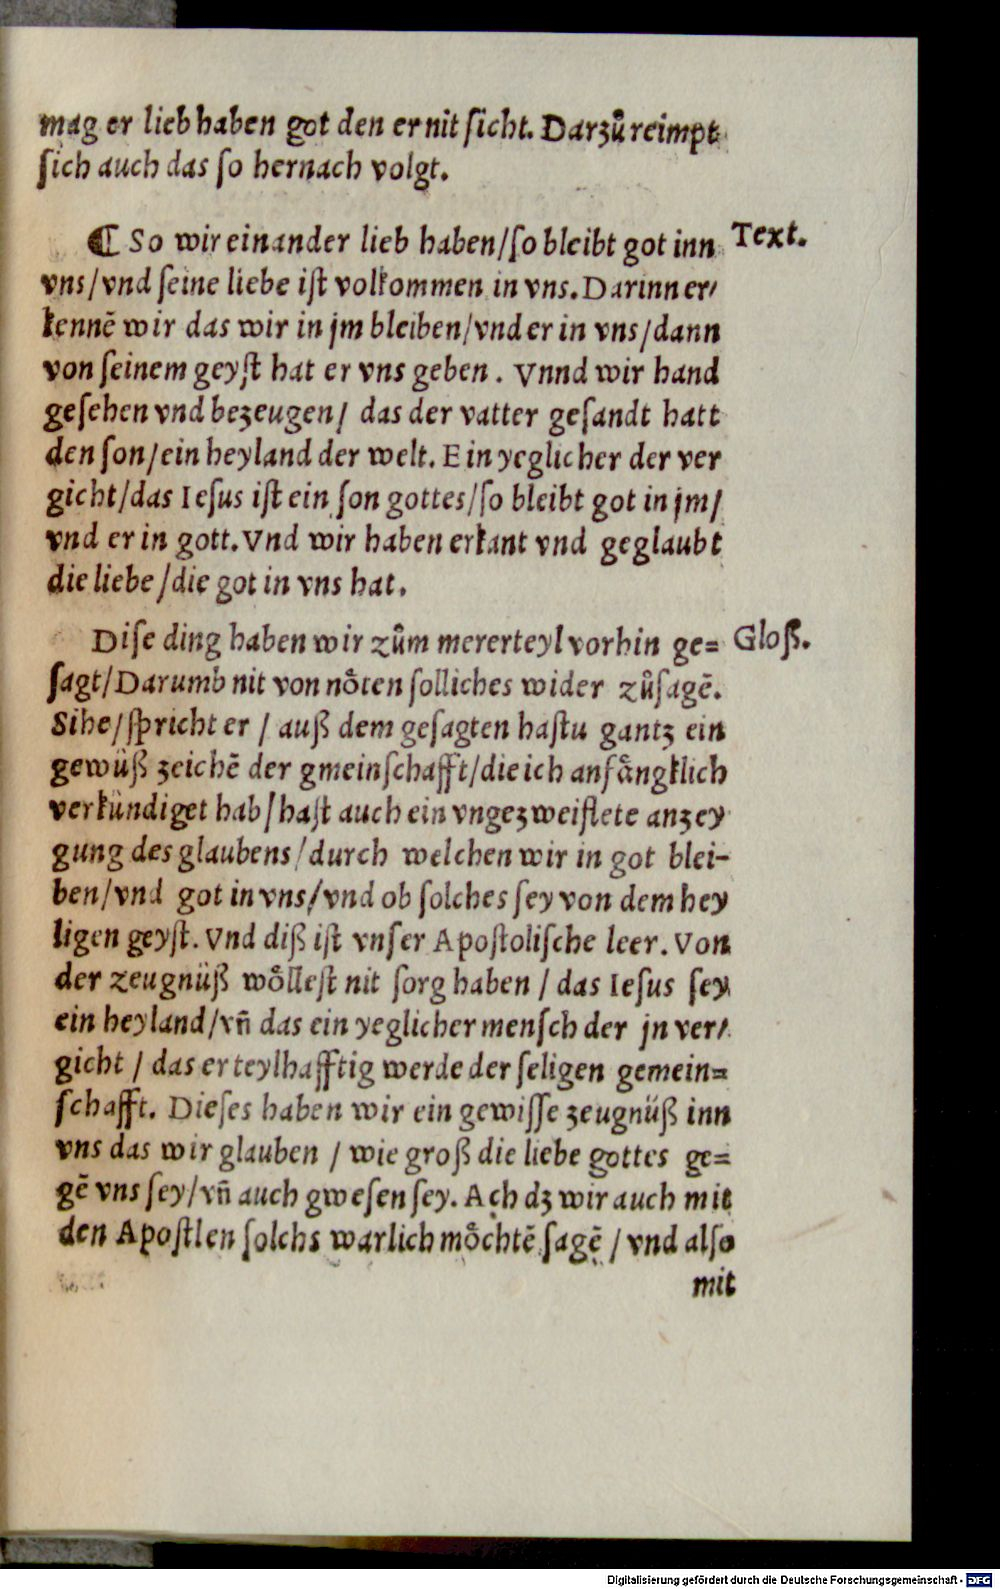 mag er lieb haben got den er nit ſicht. Darzuͦ reimpt
ſich auch das ſo hernach volgt.
¶ So wir einander lieb haben/ſo bleibt got inn
Text.
vns/vnd ſeine liebe iſt volkommen in vns. Darinn er⸗
kennē wir das wir in jm bleiben/vnd er in vns/dann
von ſeinem geyſt hat er vns geben. Vnnd wir hand
geſehen vnd bezeugen/ das der vatter geſandt hatt
den ſon/ein heyland der welt. Ein yeglicher der ver
gicht/das Ieſus iſt ein ſon gottes/ſo bleibt got in jm/
vnd er in gott. Vnd wir haben erkant vnd geglaubt
die liebe/die got in vns hat.
Diſe ding haben wir zuͦm mererteyl vorhin ge=
Gloß.
ſagt/Darumb nit von noͤten ſolliches wider zuͦſagē.
Sihe/ſpricht er/ auß dem geſagten haſtu gantz ein
gewüß zeichē der gmeinſchafft/die ich anfaͤngklich
verkündiget hab/haſt auch ein vngezweiflete anzey
gung des glaubens/durch welchen wir in got blei-
ben/vnd got in vns/vnd ob ſolches ſey von dem hey
ligen geyſt. Vnd diß iſt vnſer Apoſtoliſche leer. Von
der zeugnüß woͤlleſt nit ſorg haben/ das Ieſus ſey
ein heyland/vñ das ein yeglicher menſch der jn ver⸗
gicht/ das er teylhafftig werde der ſeligen gemein=
ſchafft. Dieſes haben wir ein gewiſſe zeugnüß inn
vns das wir glauben/ wie groß die liebe gottes ge=
gē vns ſey/vñ auch gweſen ſey. Ach dz wir auch mit
den Apoſtlen ſolchs warlich moͤchtē ſagē/ vnd alſo
mit
Digitalisierung gefördert durch die Deutsche Forschungsgemeinschaft - DFG